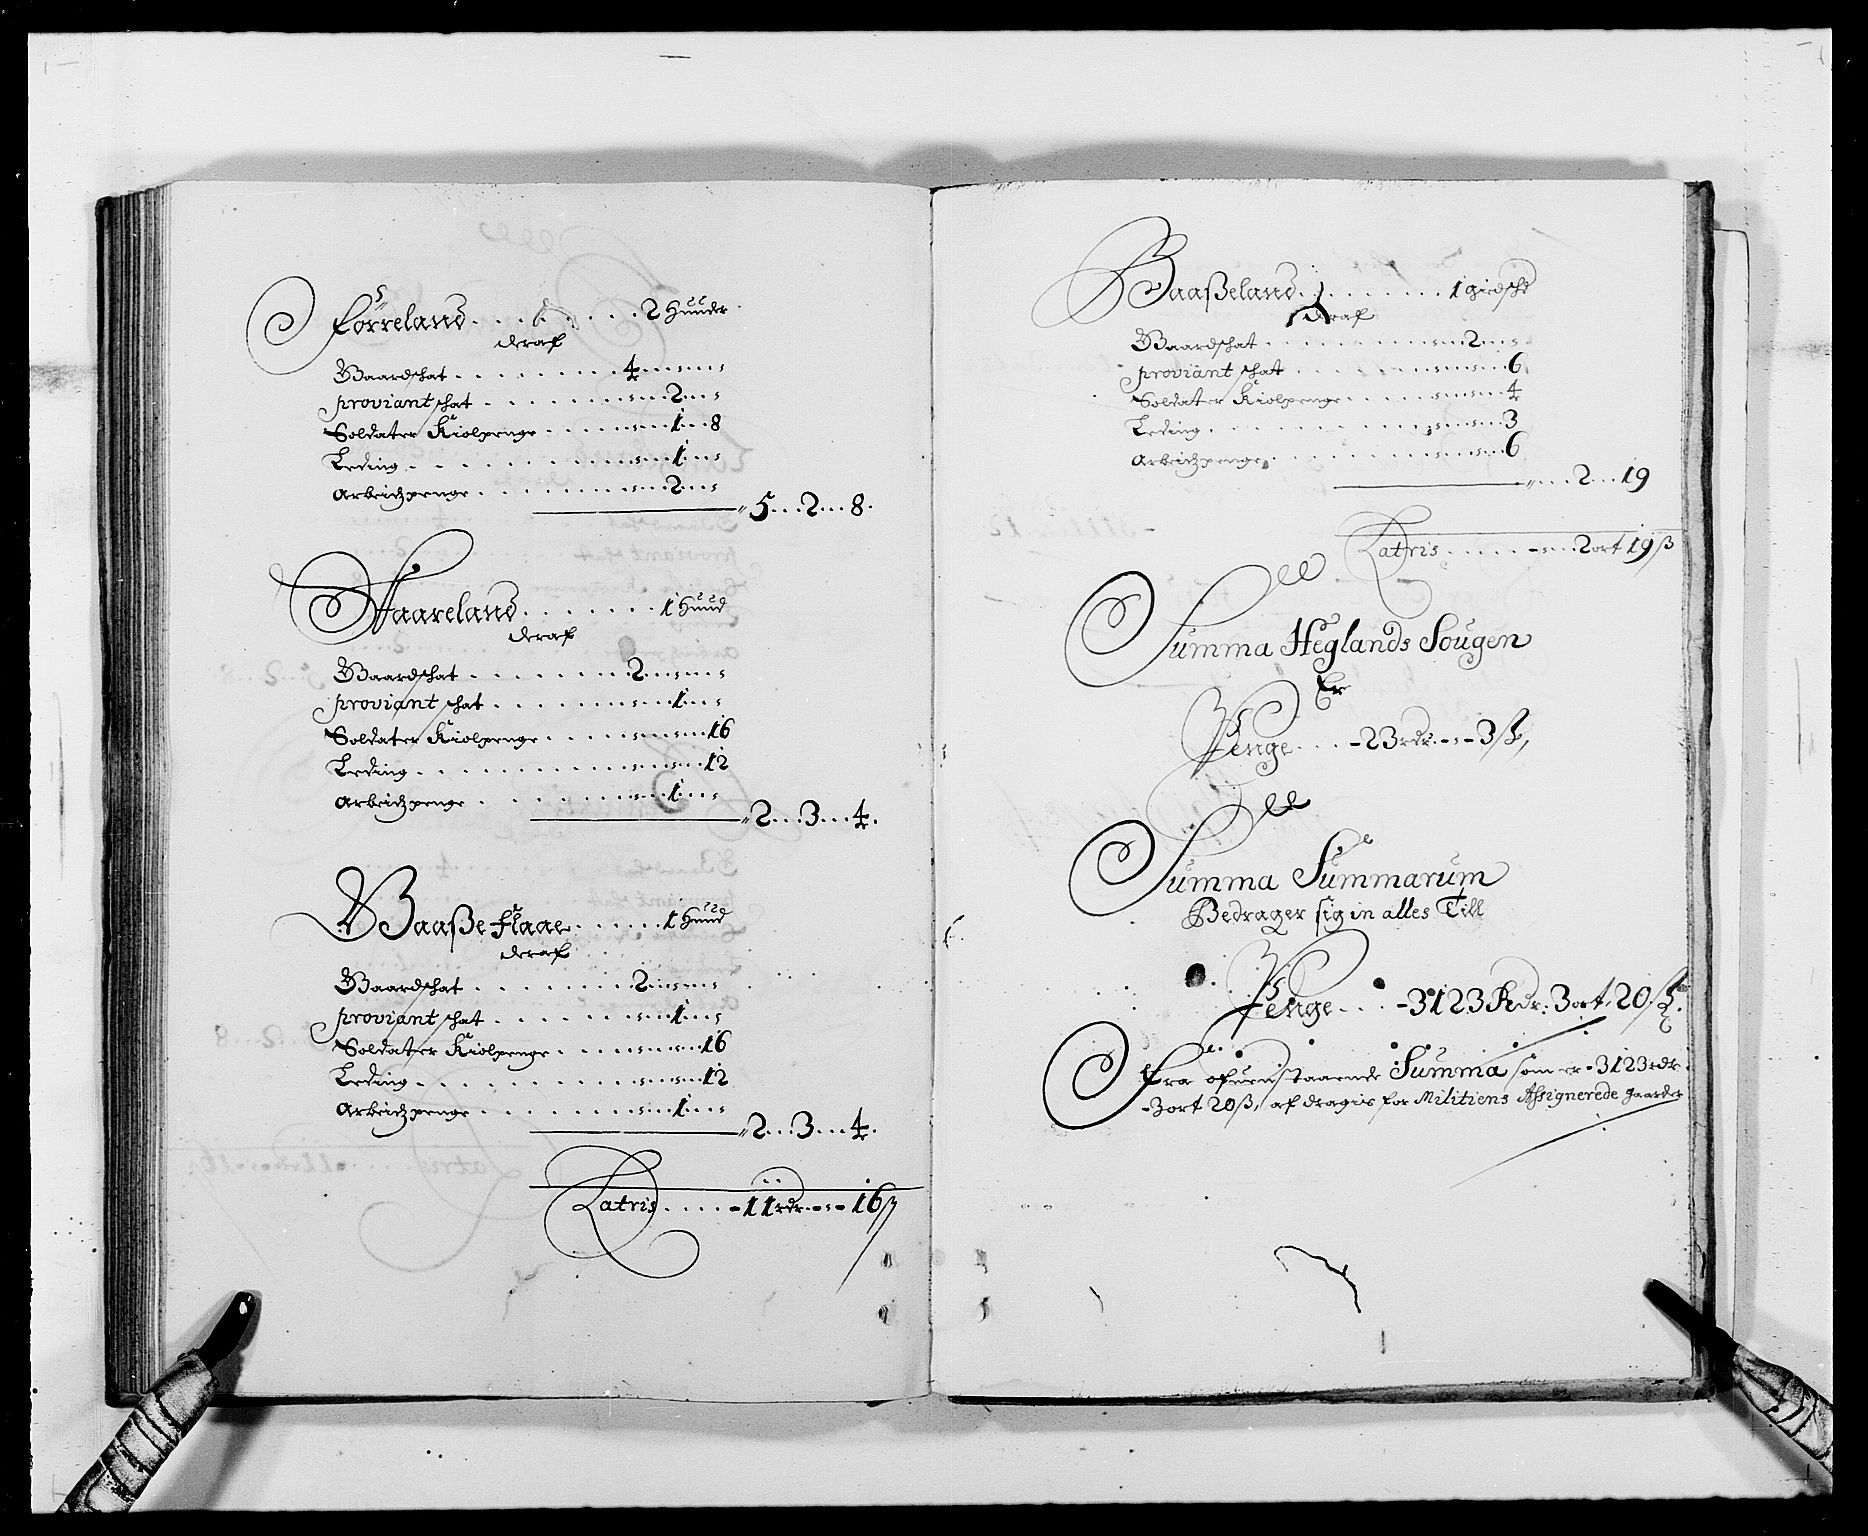 Förreland . . . . . . . . 2 Huuder
deraf
Baardschat . . . . . . . . 4
proviant schat . . . . . . 2
Soldater Kiolpenge . . . . . 1 . . 8
Leding . . . . . . . . . 1
Arbeidtzpenge . . . . . . . 2
5 . . . 2 . . . 8.
Haareland . . . . . . . 1 Huud
deraf
Baardschat . . . . . . . . 2
proviant schat . . . . . . . 1
Soldater Kiolpenge . . . . . . 16
Leding . . . . . . . . . . 12
Arbeidtzpenge . . . . . . . 1
2 . . . 3 . . . 4.
Baaße Flaae . . . . . . 1 Huud
deraf
Baardschat . . . . . . . . 2
proviant schat . . . . . . . 1
Soldater Kiolpenge . . . . . . 16
Leding . . . . . . . . . . 12
Arbeidtzpenge . . . . . . . 1
2 . . . 3 . . . 4.
Latris . . . . - 11 rdr - : - 16 ß
Baaßeland . . . . . . . . 1 giedske
deraf
Baardschat . . . . . . . . 2
proviant schat . . . . . . . 6
Soldater Kiolpenge . . . . . . 4
Leding . . . . . . . . . . 3
Arbeidtzpenge . . . . . . . 6
2 . . . 19
Latris . . . . . - 2 ort 19 ß
Summa Heglands Sougen
Er
Penge . . . - 23 rdr - : - 3 ß,
Summa Summarum
Bedrager sig in alles Till
Penge . . . - 3123 Rdr: 3 ort. 20 ß.
Fra ofuenstaaende Summa som er - 3123 rdr
- 3 ort 20 ß, afdragis for Militiens Assignerede gaarder